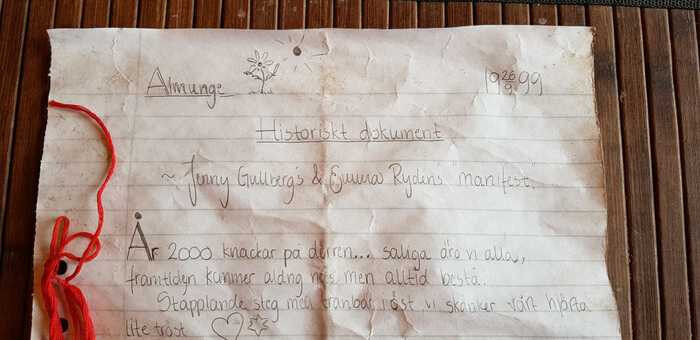 Almunge
19 26/9 99
Historiskt dokument
~ Jenny Gullberg's & Emma Rydén's manifest.
År 2000 knackar på dörren... saliga äro vi alla,
framtiden kommer aldrig men alltid bestå.
Stapplande steg med röst vi skänker vårt hjärta
lite tröst